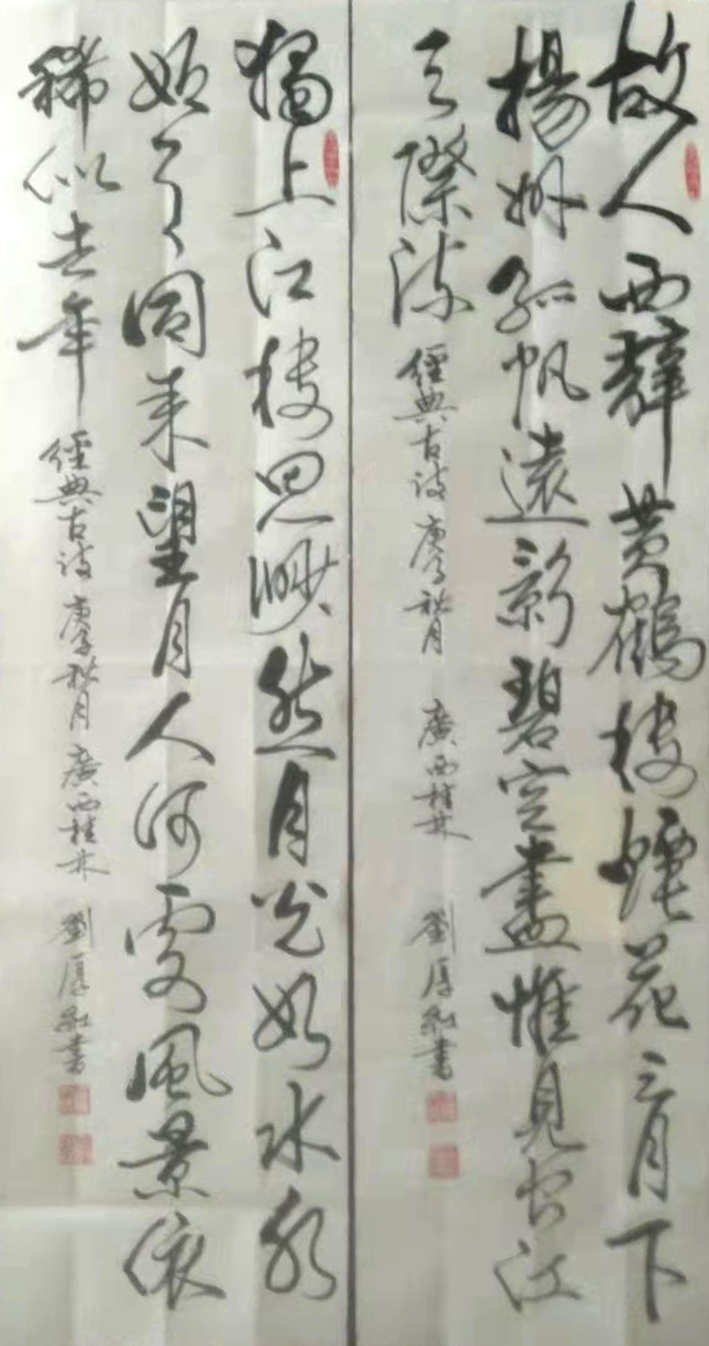 故人西辭黄鶴樓煙花三月下
揚州孤帆遠影碧空盡惟見長江
天際流 經典古詩 庚子秋月 廣西桂林 劉厚紅書
獨上江樓思渺然月光如水水
如天同來望月人何處風景依
稀似去年 經典古詩 庚子秋月 廣西桂林 劉厚紅書